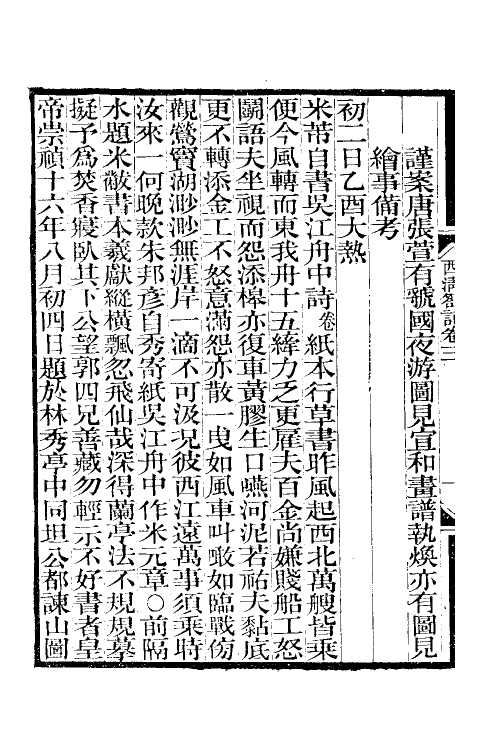 謹案唐張萱有虢國夜游圖見宣和畫譜執煥亦有圖見
繪事備考
初二日乙酉大熱
米芾自書吳江舟中詩卷紙本行草書昨風起西北萬艘皆乘
便今風轉而東我舟十五縴力乏更雇夫百金尚嫌賤船工怒
鬬語夫坐視而怨添槔亦復車黃膠生口嚥河泥若祐夫黏底
更不轉添金工不怒意滿怨亦散一曳如風車叫噉如臨戰傍
觀鶯竇湖渺渺無涯岸一滴不可汲況彼西江遠萬事須乘時
汝來一何晚款朱邦彥自秀寄紙吳江舟中作米元章○前隔
水題米敝書本羲獻縱橫飄忽飛仙哉深得蘭亭法不規規摹
擬予爲焚香寢臥其下公望郭四兄善藏勿輕示不好書者皇
帝崇禎十六年八月初四日題於林秀亭中同坦公都諫山圖
西清劄記卷二